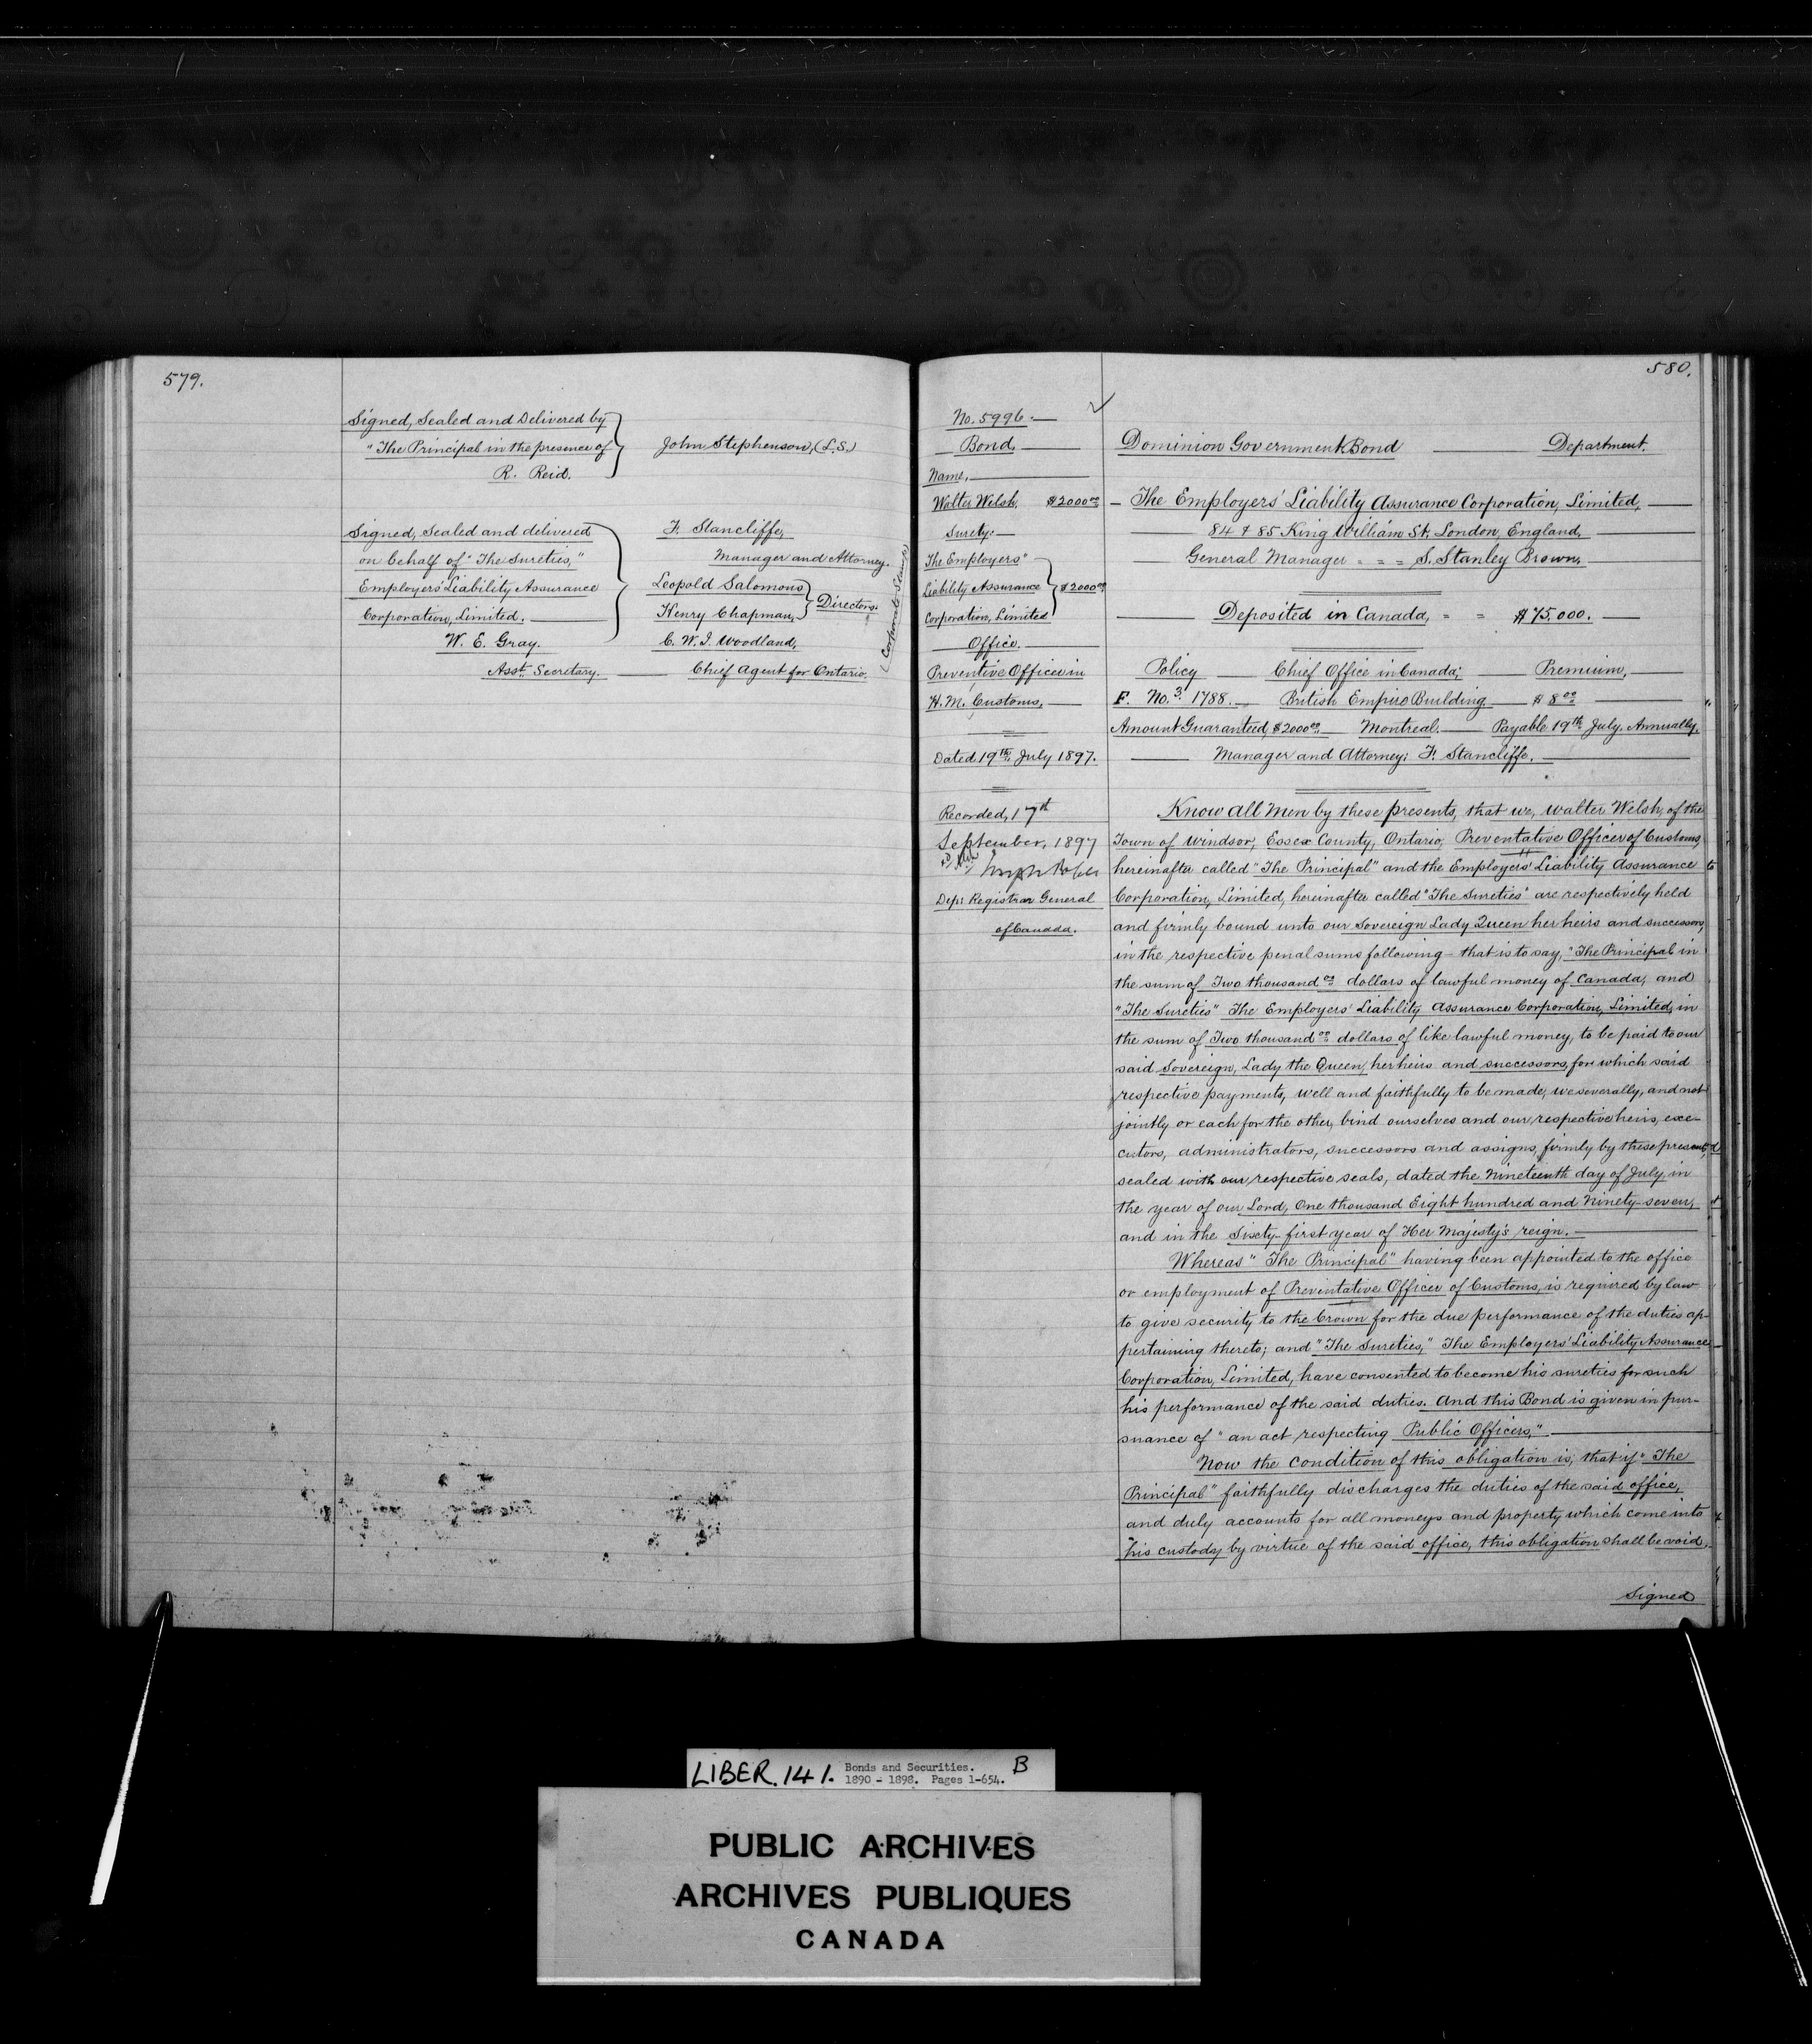 579.
Signed, Sealed and Delivered by
"The Principal in the presence of
R. Reid.
John Stephenson, (L.S.)
Signed, Sealed and delivered
on behalf of "The Sureties,"
Employers' Liability Assurance
Corporation, Limited.
W. E. Gray.
Asst. Secretary.
F. Stancliffe,
Manager and Attorney.
Leopold Salomons
Henry Chapman,
Directors.
C. W. I. Woodland,
Chief Agent for Ontario.
(Corporate Stamp)
580.
No. 5996.
Bond,
Name,
Walter Welsh, $2000 00
Surety:
The Employers'
Liability Assurance
Corporation, Limited
$2000 00
Office.
Preventive Officer in
H. M. Customs,
Dated 19th July 1897.
Recorded, 17th
September, 1897
Dep: Registrar General
of Canada.
Dominion Government Bond Department.
The Employers' Liability Assurance Corporation, Limited,
84 & 85 King William St. London, England,
General Manager = = = S. Stanley Brown,
Deposited in Canada, = = $75.000.
Policy Chief Office in Canada; Premium,
F. No. 3. 1788. British Empire Building $8 00
Amount Guaranteed $2000 00 Montreal. Payable 19th July. Annually.
Manager and Attorney; F. Stancliffe.
Know all Men by these presents, that we, Walter Welsh, of the
Town of Windsor, Essex County, Ontario, Preventative Officer of Customs,
hereinafter called "The Principal" and the Employers' Liability Assurance
Corporation, Limited, hereinafter called "The Sureties" are respectively held
and firmly bound unto our Sovereign Lady Queen her heirs and successors,
in the respective penal sums following – that is to say, "The Principal in
the sum of Two thousand 00 dollars of lawful money of Canada, and
"The Sureties" The Employers' Liability Assurance Corporation, Limited, in
the sum of Two thousand 00 dollars of like lawful money, to be paid to our
said Sovereign, Lady the Queen, her heirs and successors, for which said
respective payments, well and faithfully to be made, we severally, and not
jointly or each for the other, bind ourselves and our respective heirs, exe-
cutors, administrators, successors and assigns, firmly by these presents,
sealed with our respective seals, dated the Nineteenth day of July in
the year of our Lord, One thousand Eight hundred and Ninety-seven,
and in the Sixty-first year of Her Majesty's reign.
Whereas "The Principal" having been appointed to the office
or employment of Preventative Officer of Customs, is required by law
to give security to the Crown for the due performance of the duties ap-
pertaining thereto; and "The Sureties," The Employers' Liability Assurance
Corporation, Limited, have consented to become his sureties for such
his performance of the said duties. And this Bond is given in pur-
suance of "an act respecting Public Officers,"
Now the condition of this obligation is, that if "The
Principal" faithfully discharges the duties of the said office,
and duly accounts for all moneys and property which come into
his custody by virtue of the said office, this obligation shall be void.
Signed
LIBER. 141. Bonds and Securities. B
1890 - 1898. Pages 1-654.
PUBLIC ARCHIVES
ARCHIVES PUBLIQUES
CANADA